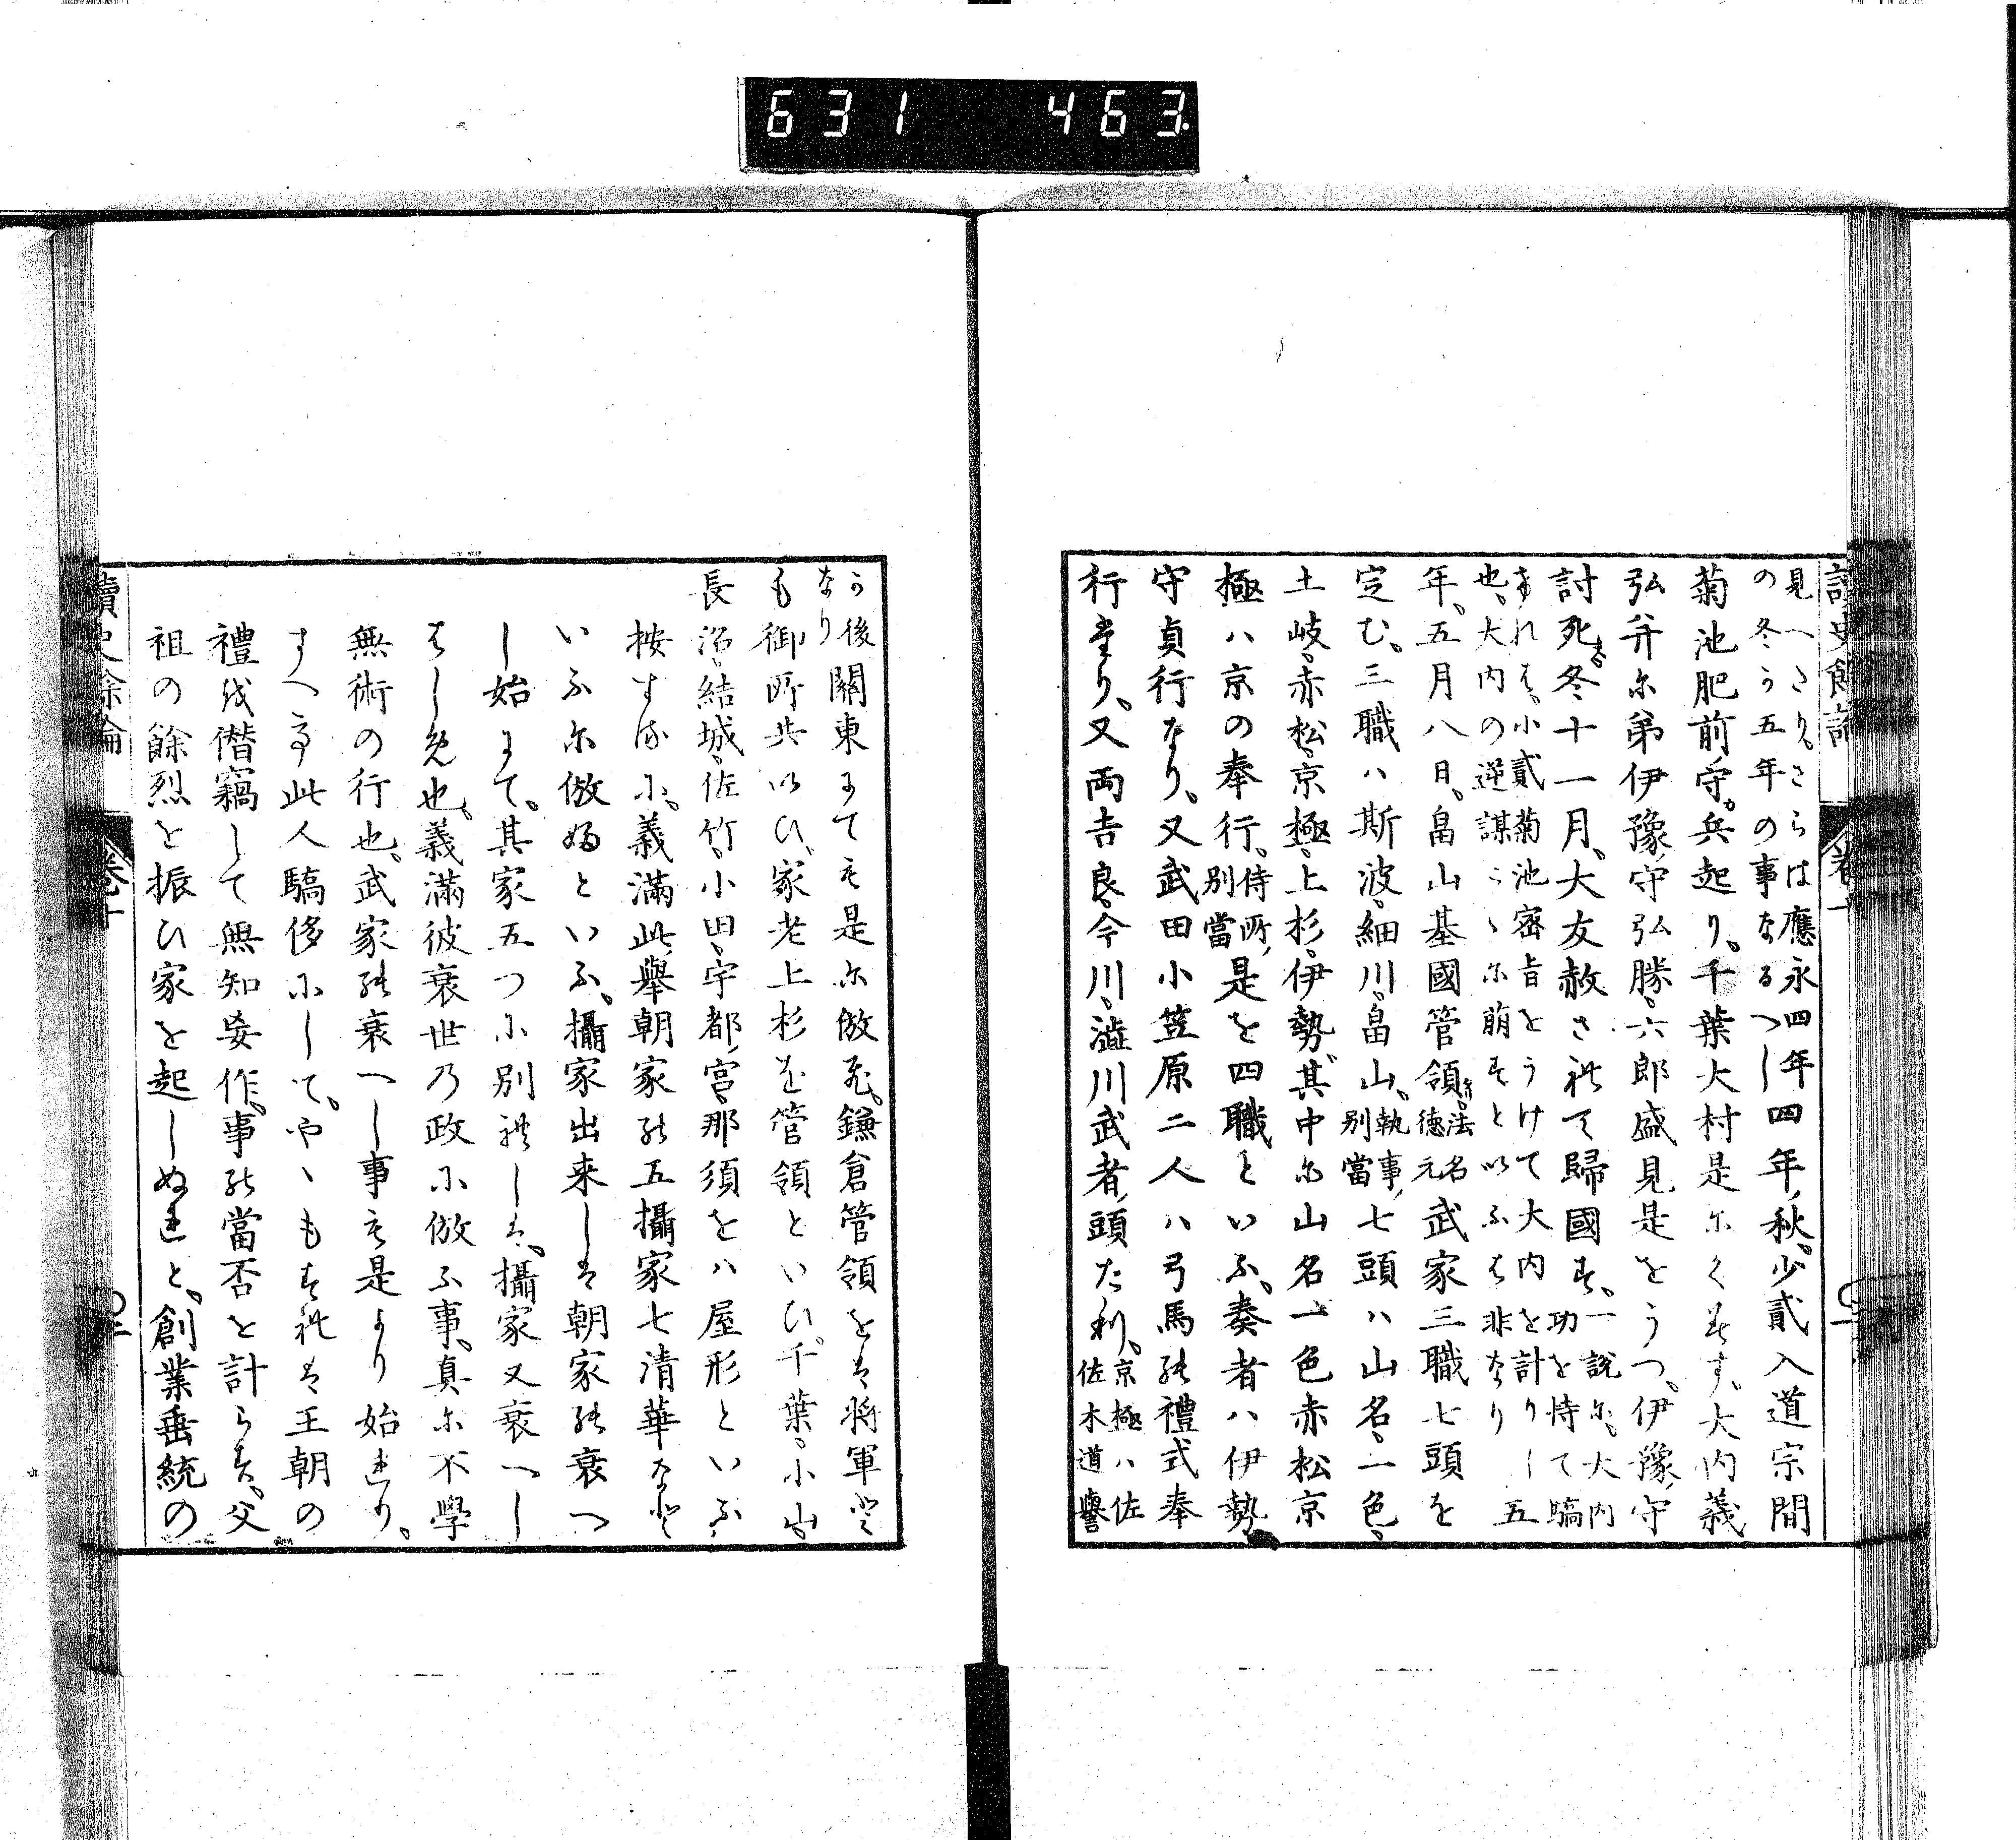 631 463
讀史餘論 卷十
見へさり。さらは應永四年
の冬か五年の事なるへし四年、秋。少貳入道宗間
菊池肥前守。兵起り。千葉大村是にくみす。大内義
弘并に弟伊豫守弘勝。六郎盛見是をうつ。伊豫守
討死。冬十一月。大友赦されて歸國す。一説に。大内
功を恃て驕
けれは。小貳菊池密旨をうけて大内を計りし
也。大内の逆謀こゝに萠すといふは非なり五
年。五月八日。畠山基國管領。法名
德元武家三職七頭を
定む。三職ハ斯波。細川。畠山。執事
別當七頭ハ山名。一色。
土岐。赤松。京極。上杉。伊勢。其中に山名一色赤松京
極ハ京の奉行。侍所
別當是を四職といふ。奏者ハ伊勢
守貞行なり。又武田小笠原二人ハ弓馬の禮式奉
行たり。又両吉良。今川。澁川武者頭たり。京極ハ佐
佐木道譽
か後
なり關東にても是に倣て。鎌倉管領をは將軍と
も御所共いひ。家老上杉を管領といひ。千葉。小山。
長沼。結城。佐竹。小田。宇都宮。那須をハ屋形といふ。
按するに。義滿此擧朝家の五攝家七清華なと
いふに倣ぬといふ。攝家出来しは朝家の衰へ
し始にて。其家五つに別れしは。攝家又衰へし
はしめ也。義滿彼衰世の政に倣ふ事。真に不學
無術の行也。武家の衰へし事も是より始まれり。
すへて此人驕侈にして。やゝもすれは王朝の
禮を僭竊して無知妄作。事の當否を計らす。父
祖の餘烈を振ひ家を起しぬれと。創業垂統の
讀史餘論 卷十